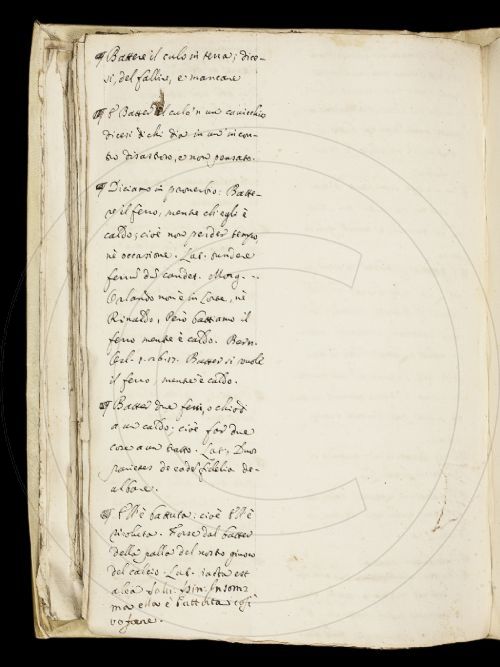 ¶ Battere il culo in terra; dico-
si, del fallir, e mancare
¶ E Batter il culo 'n un cavicchio
dicesi di chi dia in un' incon-
tro disastroso, e non pensato.
¶ Diciamo in proverbio: Batte-
re il ferro, mentre ch'egli è
caldo; cioè non perder tempo,
nè occasione. Lat. tundere
ferrũ dũ candet. Morg. --
Orlando non è in Corte, nè
Rinaldo, Però battiamo il
ferro mentre è caldo. Bern.
Orl. 1. 26. 17. Batter si vuole
il ferro, mentre è caldo.
¶ Batter due ferri, o chiodi
a un caldo; cioè far due
cose a un tratto. Lat. Duos
parietes de eadẽ fidelia de-
albare.
¶ Ell'è battuta: cioè Ell'è
risoluta. Forse dal batter
della palla del nostro giuoco
del calcio. Lat. iacta est
alea. Insom-
ma ella è battuta così
vo fare.